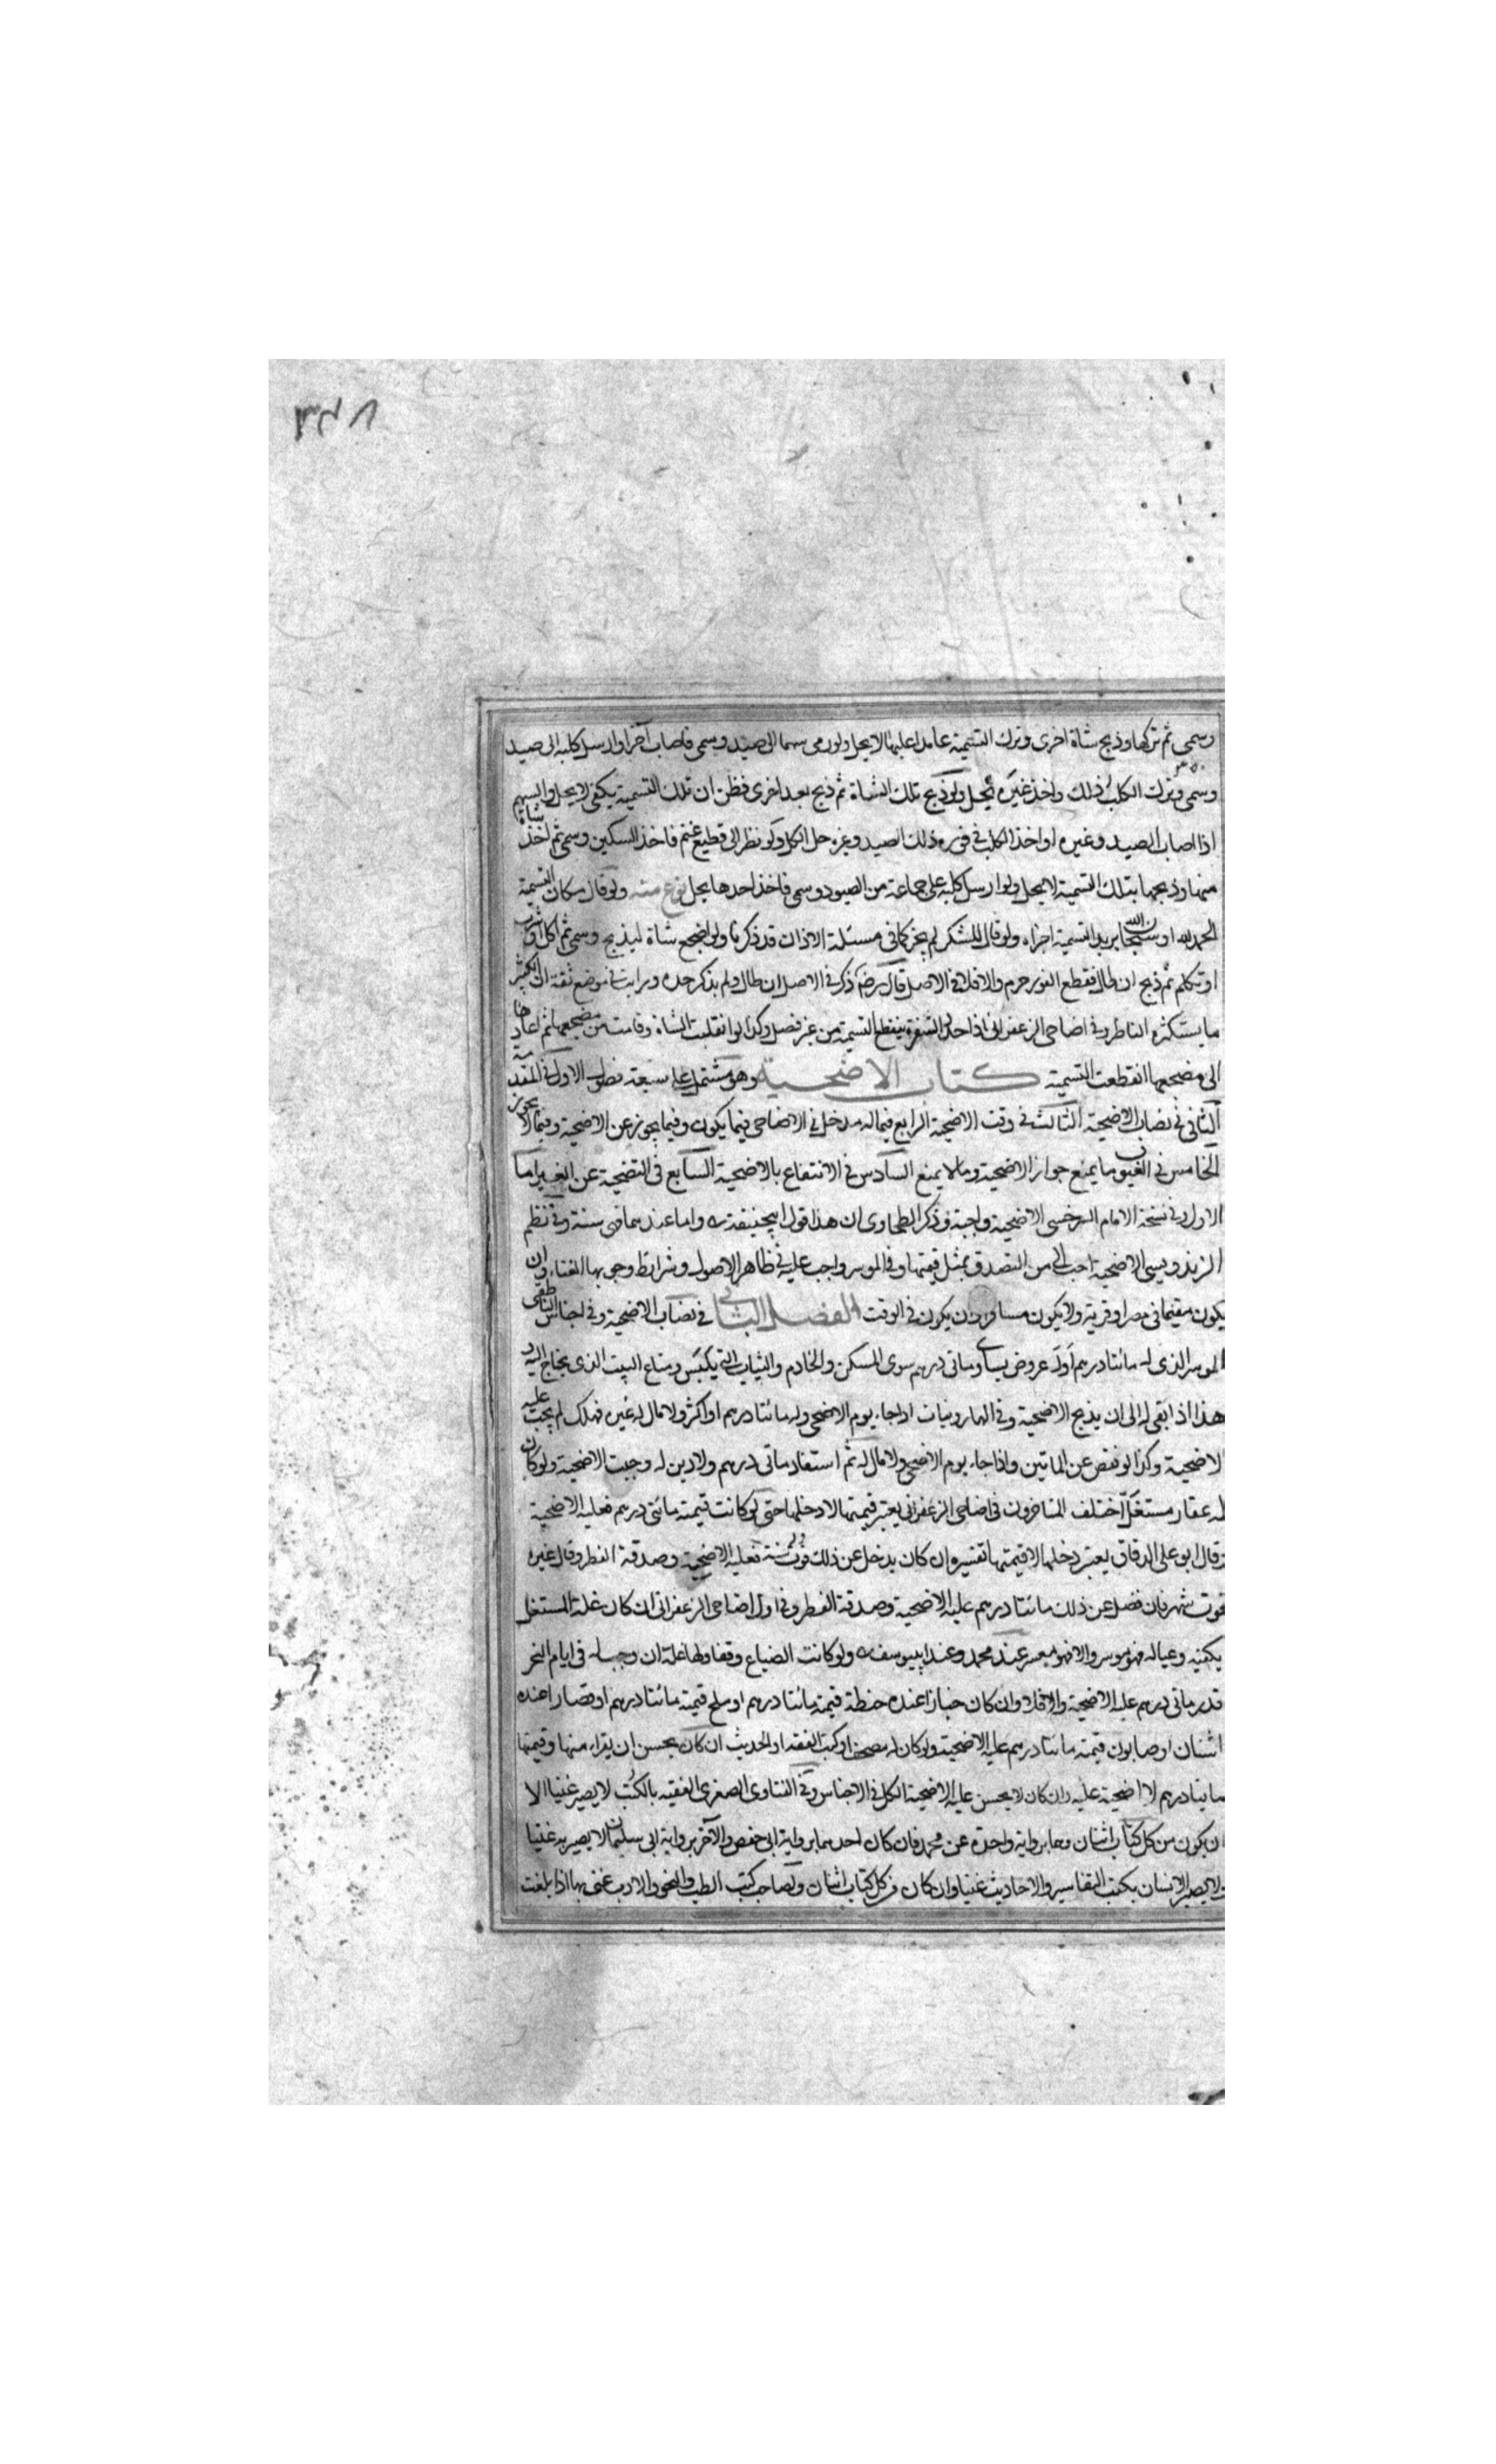 ٣٤٨
وسمى ثم تركها وذبح شاة اخرى وترك التسمية عامدا عليها لا يحل ولو رمى سهما الى صيد وسمى فاصاب آخر او ارسل كلبه الى صيد
وسمى وترك الكلب ذلك واخذ غيره يحل ولو ذبح تلك الشاة ثم ذبح بعد اخرى فظن ان تلك التسمية يكفى لا يحل والسهم
اذا اصاب الصيد وغيره او اخذ الكلب فى فوره ذلك الصيد وغيره حل الكل ولو نظر الى قطيع غنم فاخذ السكين وسمى ثم اخذ شاة
منها وذبحها بتلك التسمية لا يحل ولو ارسل كلبه على جماعة من الصيود وسمى فاخذ احدها يحل نوع منه ولو قال مكان التسمية
الحمد لله او سبحان الله يريد التسمية اجزاه ولو قال للشكر لم يجز كما فى مسئلة الاذان قد ذكرنا ولو اضجع شاة ليذبح وسمى ثم اكل او شرب
او تكلم ثم ذبح ان طال فقطع الفور حرم والا فلا فى الاصل قال رضه ذكر فى الاصل ان طال ولم يذكر حده ورايت فى موضع ثقة ان الكثير
ما يستكثره الناظر وفى اضاحى الزعفرانى اذا حد الشفرة ينقطع التسمية من غير فصل وكذا لو انقلبت الشاة وقامت من مضجعها ثم اعادها
الى مضجعها انقطعت التسمية كتاب الاضحية وهو مشتمل على سبعة فصول الاول فى المقدمة
الثانى فى نصاب الاضحية الثالث فى وقت الاضحية الرابع فيما له مدخل فى الاضاحى فيما يكون وفيما يجوز عن الاضحية وفيما لا يجوز
الخامس فى العيوب ما يمنع جواز الاضحية وما لا يمنع السادس فى الانتفاع بالاضحية السابع فى التضحية عن الغير اما
الاول وفى نسخة الامام السرخسى الاضحية واجبة وذكر الطحاوى ان هذا قول ابيحنيفة ره واما عندهما فهى سنة وفى نظم
الزندويسى الاضحية احب الى من التصدق بمثل قيمتها وفى الموسر واجب عليه فى ظاهر الاصول وشرايط وجوبها الغناء وان
يكون مقيما فى مصر او قرية ولا يكون مسافرا وان يكون فى الوقت الفصل الثانى فى نصاب الاضحية وفى اجناس الناطفى
الموسر الذى له مائتا درهم او له عروض يساوى مائتى درهم سوى المسكن والخادم والثياب التى يلبس ومتاع البيت الذى يحتاج اليه و
هذا اذا بقى له الى ان يذبح الاضحية وفى الهارونيات اذا جاء يوم الاضحى وله مائتا درهم او اكثر ولا مال له غيره فهلك لم يجب عليه
الاضحية وكذا لو نقص عن الماتين واذا جاء يوم الاضحى ولا مال له ثم استفاد مائتى درهم ولا دين له وجبت الاضحية ولو كان
له عقار مستغل اختلف المتاخرون فى اضاحى الزعفرانى يعتبر قيمتها لا دخلها حتى لو كانت قيمته مائتى درهم فعليه الاضحية
وقال ابو على الدقاق يعتبر دخلها لا قيمتها تفسيره ان كان يدخل عن ذلك قوت سنة فعليه الاضحية وصدقة الفطر وقال غيره
قوت شهر فان فضل عن ذلك مائتا درهم عليه الاضحية وصدقة الفطر وفى اول اضاحى الزعفرانى ان كان غلة المستغل
يكفيه وعياله فهو موسر والا فهو معسر عند محمد وعند ابيوسف ره ولو كانت الضياع وقفا ولها غلة ان وجب له فى ايام النحر
قدر مائتى درهم عليه الاضحية والا فلا وان كان خبازا عنده حنطة قيمته مائتا درهم او ملح قيمته مائتا درهم او قصارا عنده
اشنان او صابون قيمته مائتا درهم عليه الاضحية ولو كان له مصحف او كتب الفقه او الحديث ان كان يحسن ان يقراء منها وقيمتها
مائتا درهم لا اضحية عليه وان كان لا يحسن عليه الاضحية الكل فى الاجناس وفى الفتاوى الصغرى الفقيه بالكتب لا يصير غنيا الا
ان يكون من كل كتاب اثنان وهما برواية واحدة عن محمد فان كان احدهما برواية ابى حفص والآخر برواية ابى سليمان لا يصير به غنيا
ولا يصير الانسان بكتب التفاسير والاحاديث غنيا وان كان من كل كتاب اثنان وصاحب كتب الطب والنحو والادب غنى بها اذا بلغت